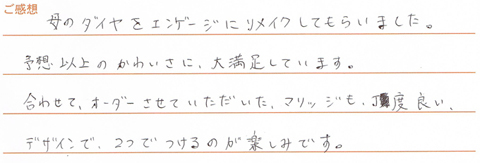 ご感想
母のダイヤをエンゲージにリメイクしてもらいました。
予想以上のかわいさに、大満足しています。
合わせて、オーダーさせていただいた、マリッジも、丁度良い、
デザインで、2つでつけるのが楽しみです。